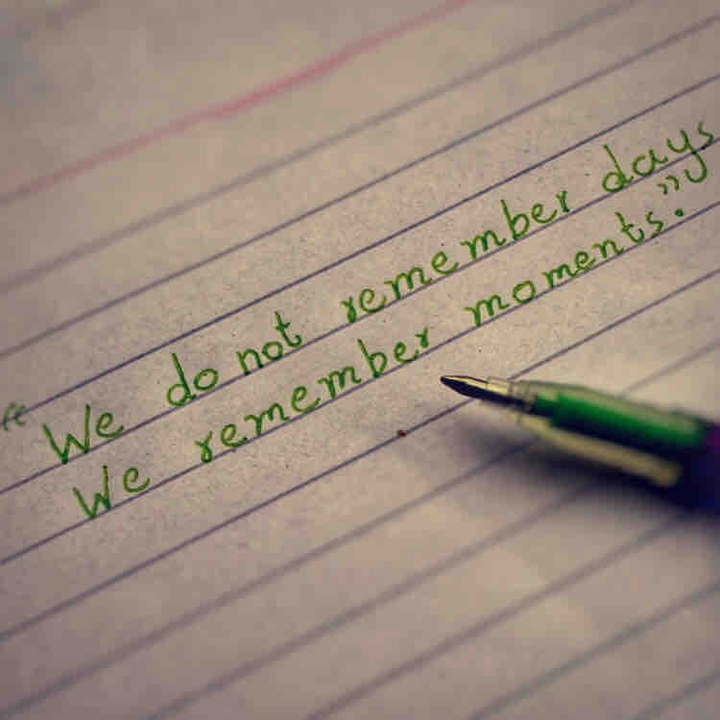 “We do not remember days
We remember moments.”